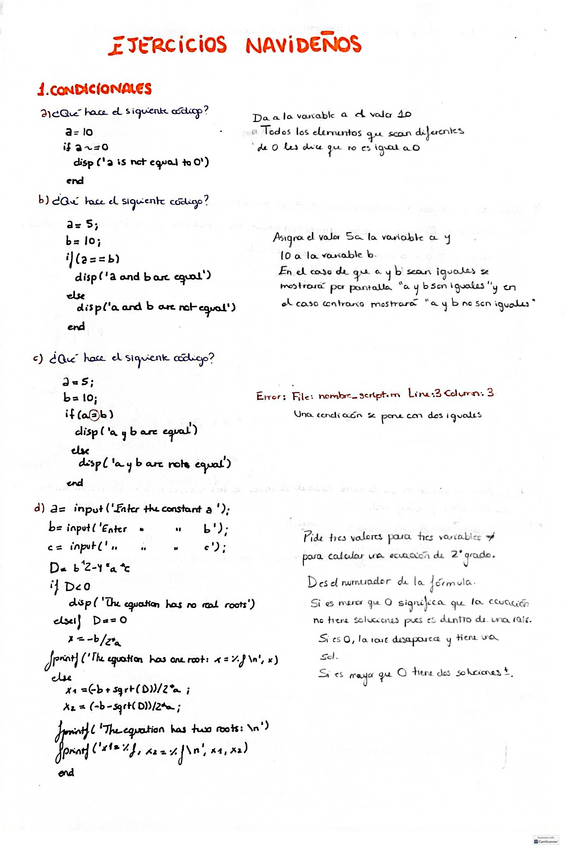 EJERCICIOS NAVIDEÑOS
1.CONDICIONALES
a) ¿Qué hace el siguiente código?
a= 10
if a ~=0
disp ('a is not equal to 0')
end
Da a la variable a el valor 10
Todos los elementos que sean diferentes
de 0 les dice que no es igual a 0
b) ¿Qué hace el siguiente código?
a= 5;
b= 10;
if(a==b)
disp('a and b are equal')
else
disp('a and b are not equal')
end
Asigna el valor 5 a la variable a y
10 a la variable b.
En el caso de que a y b sean iguales se
mostrará por pantalla "a y b son iguales" y en
el caso contrario mostrará "a y b no son iguales"
c) ¿Qué hace el siguiente código?
a=5;
b= 10;
if(a=b)
disp('a y b are equal')
else
disp('a y b are note equal')
end
Error: File: nombre_script.m Line:3 Column: 3
Una condición se pone con dos iguales
d) a= input('Enter the constant a');
b= input('Enter " " b');
c= input(' " " " c');
D= b^2-4*a*c
if D<0
disp('The equation has no real roots')
elseif D==0
x= -b/2*a
fprintf('The equation has one root: x=%f\n', x)
else
x1=(-b+sqrt(D))/2*a;
x2=(-b-sqrt(D))/2*a;
fprintf('The equation has two roots: \n')
fprintf('x1=%f, x2=%f\n', x1, x2)
end
Pide tres valores para tres variables
para calcular una ecuación de 2º grado.
D es el numerador de la fórmula.
Si es menor que 0 significa que la ecuación
no tiene soluciones pues es dentro de una raíz.
Si es 0, la raíz desaparece y tiene una
sol.
Si es mayor que 0 tiene dos soluciones ±.
CamScanner